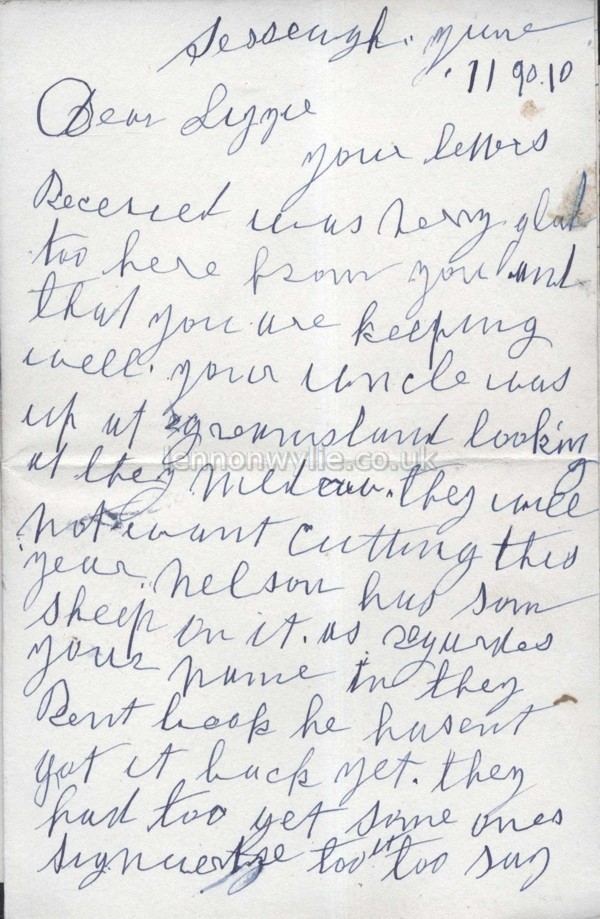 Sessenagh. June
11 90.10
Dear Lizzie
your letters
Received was verry glad
too here from you and
that you are keeping
well. your uncle was
up at looking
at they medow. they will
not want cutting this
year. Nelson has som
sheep on it. as regardes
your name in they
Rent book he hasent
got it back yet. they
had too get some ones
too it too say
lennonwylie.co.uk